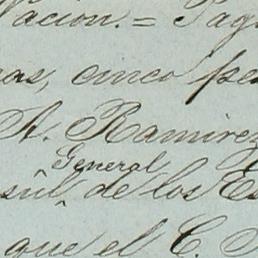 acion. = Pag
as, cinco pe
A. Ramirez
General
sul, de los Es
que el C.